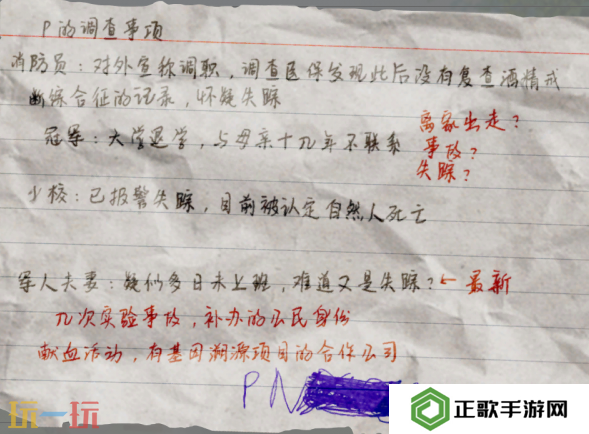 P的调查事项
消防员：对外宣称调职，调查医保发现此后没有复查酒精戒
断综合征的记录，怀疑失踪
冠军：大学退学，与母亲十几年不联系
离家出走？
事故？
失踪？
少校：已报警失踪，目前被认定自然人死亡
军人夫妻：疑似多日未上班，难道又是失踪？←最新
几次实验事故，补办的公民身份
献血活动，有基因溯源项目的合作公司
P N
玩一玩
正歌手游网